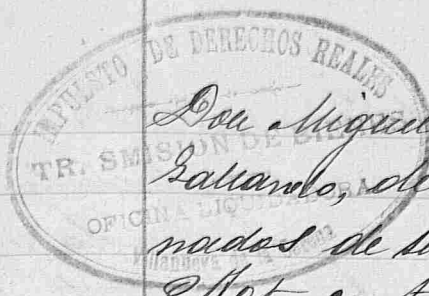 IMPUESTO DE DERECHOS REALES
TR. SMISION DE BIENES
OFICINA LIQUIDADORA
Villanueva de la Serena
Don Miguel
Gallardo, de
nados de su